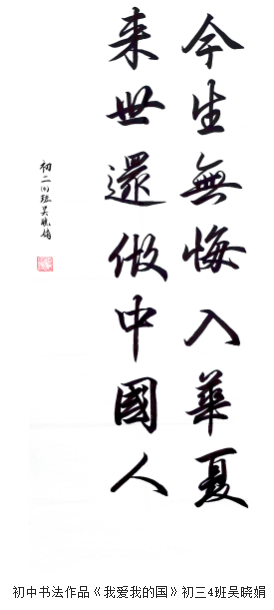 今生無悔入華夏
来世還做中國人
初二(4)班吴晓娟
初中书法作品《我爱我的国》初三4班吴晓娟